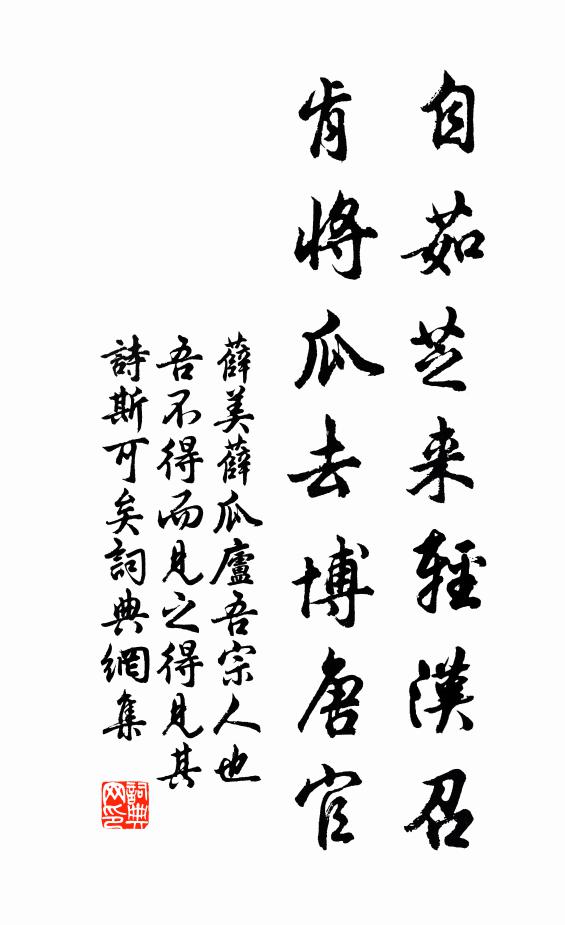 自茹芝来輕漢召
肯將瓜去博唐官
薛美薛瓜廬吾宗人也
吾不得而見之得見其
詩斯可矣詞典網集
詞典
网印